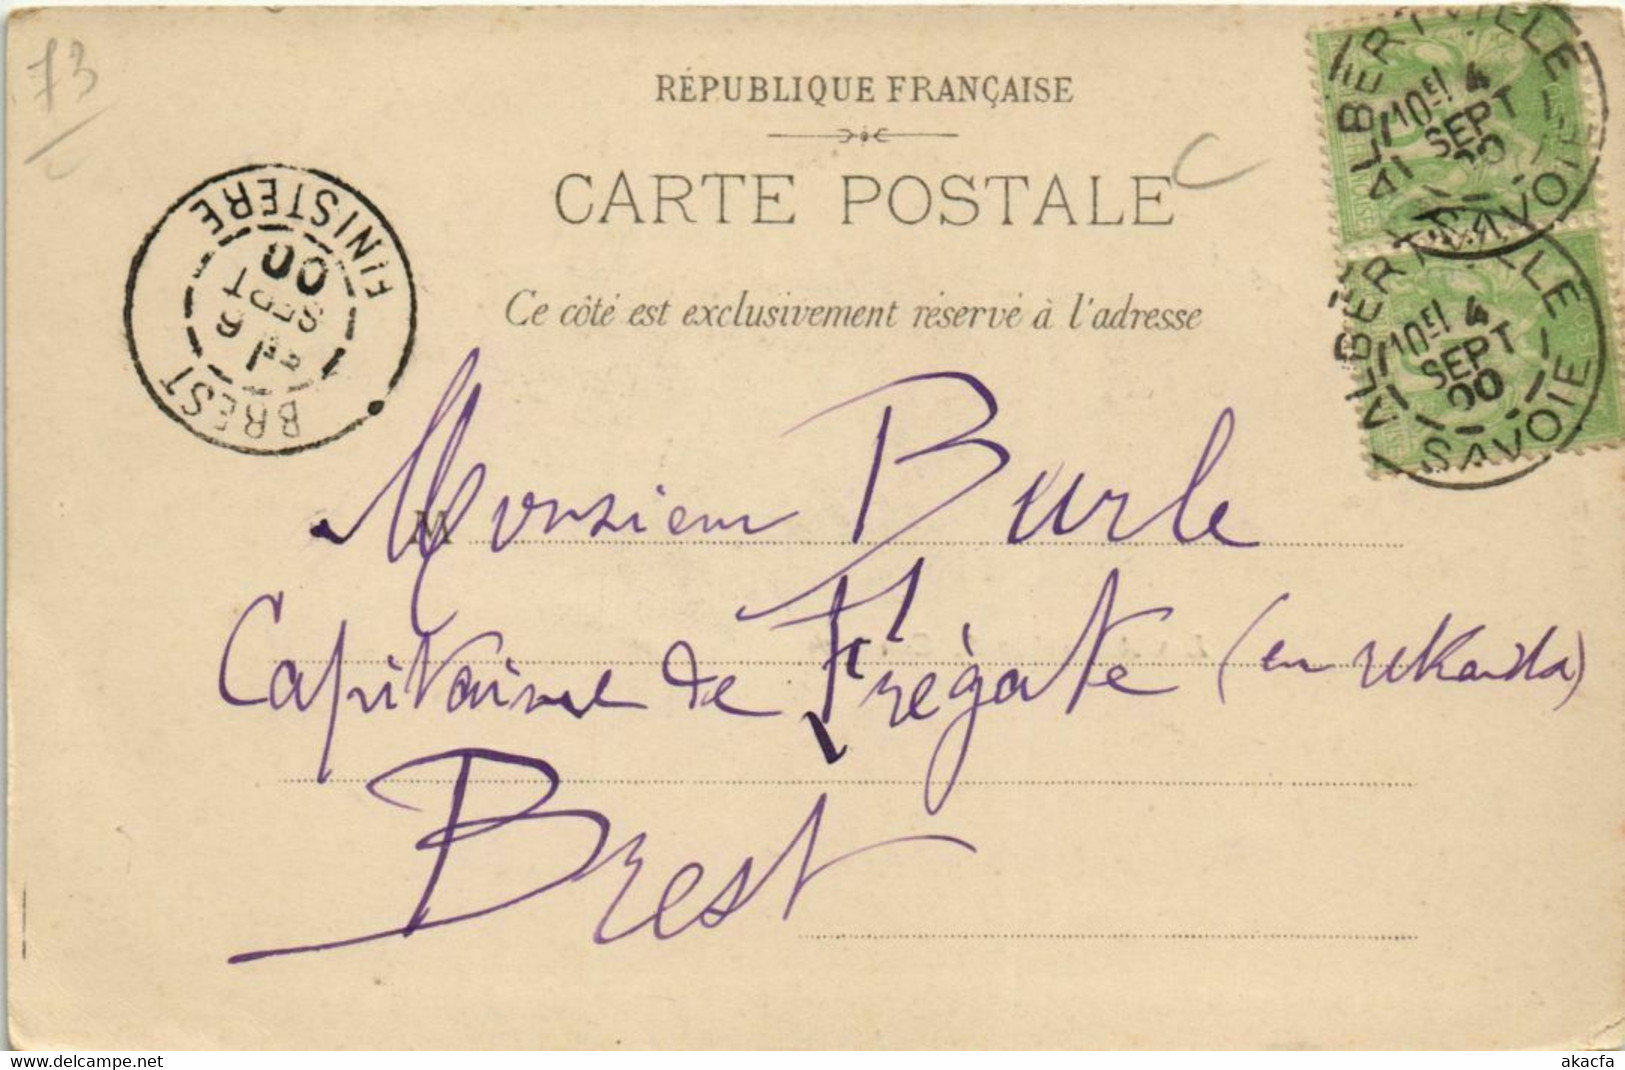 73
RÉPUBLIQUE FRANÇAISE
CARTE POSTALE
C
Ce côté est exclusivement réservé à l'adresse
ALBERTVILLE
10E/ 4
SEPT
00
SAVOIE
ALBERTVILLE
10E/ 4
SEPT
00
SAVOIE
BREST
6
SEPT
00
FINISTERE
M
Monsieur Burle
Capitaine de Frégate (en
Brest
delcampe.net
akacfa